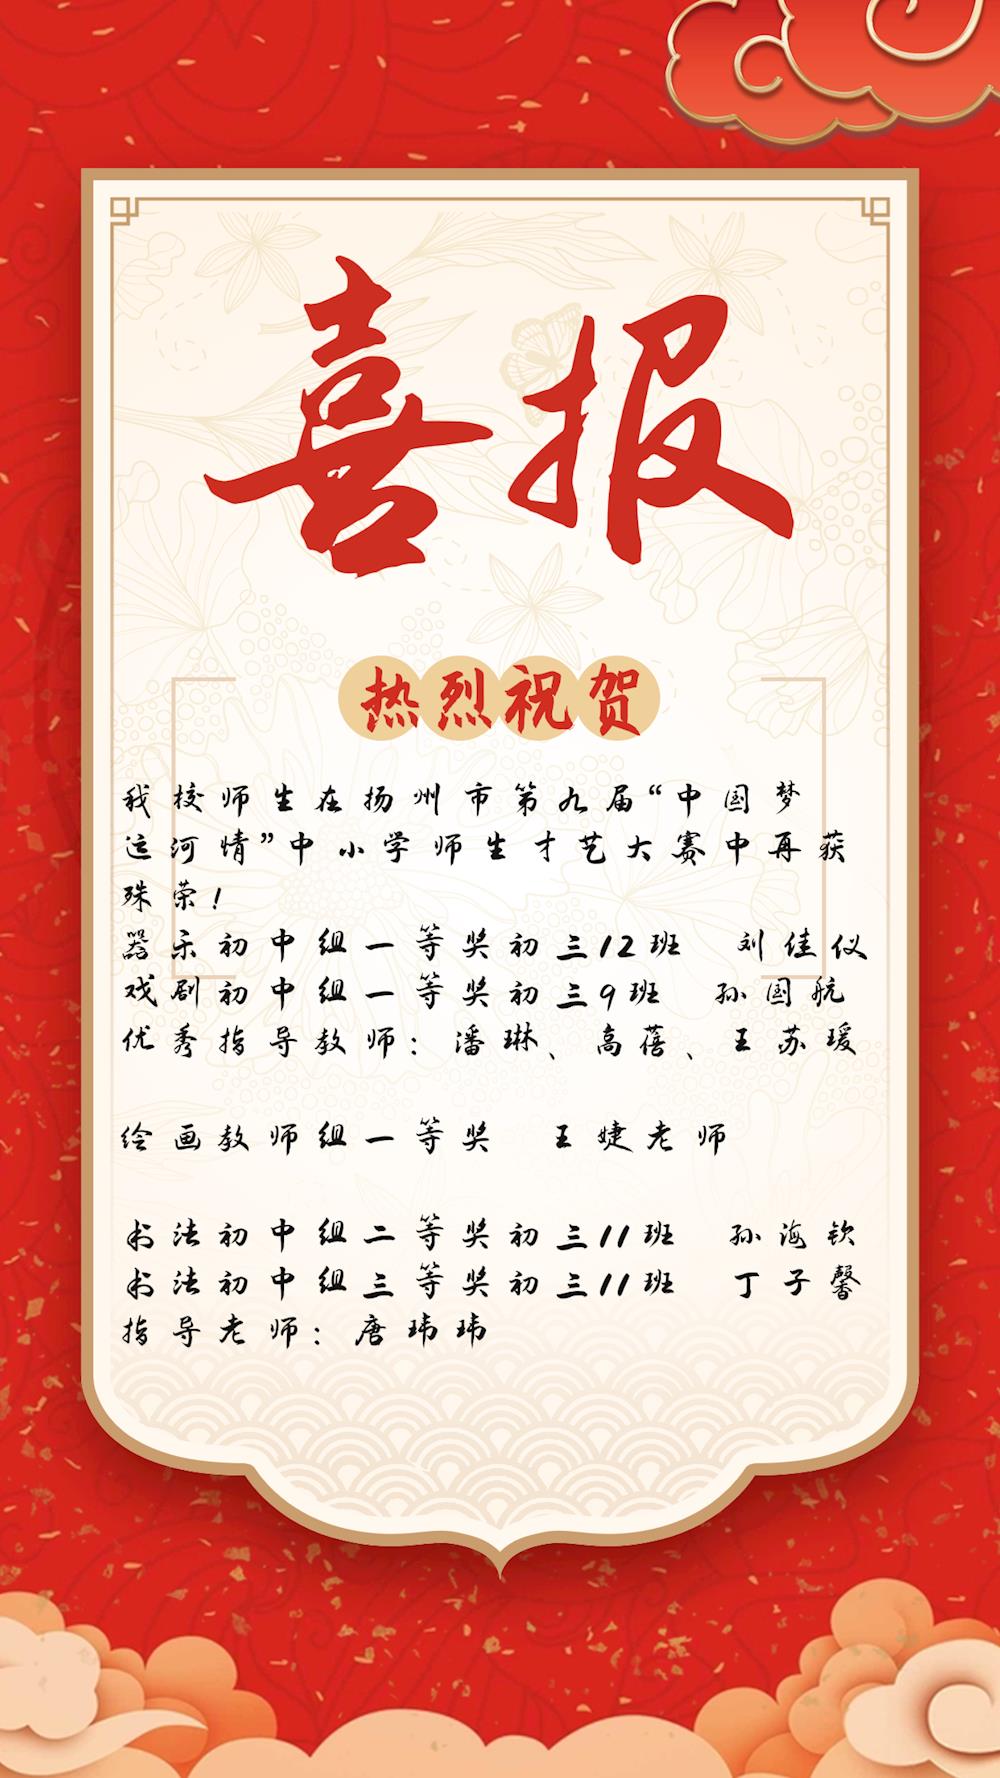 喜报
热烈祝贺
我校师生在扬州市第九届“中国梦
运河情”中小学师生才艺大赛中再获
殊荣!
器乐初中组一等奖初三12班 刘佳仪
戏剧初中组一等奖初三9班 孙国航
优秀指导教师:潘琳、高蓓、王苏瑗
绘画教师组一等奖 王婕老师
书法初中组二等奖初三11班 孙海钦
书法初中组三等奖初三11班 丁子馨
指导老师:唐玮玮